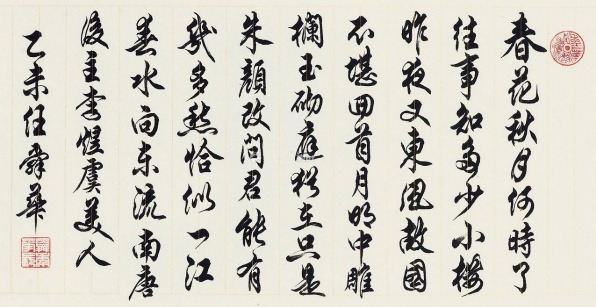 春花秋月何時了
往事知多少小樓
昨夜又東風故國
不堪回首月明中雕
欄玉砌應猶在只是
朱顏改問君能有
幾多愁恰似一江
春水向东流南唐
後主李煜虞美人
乙未任舜華